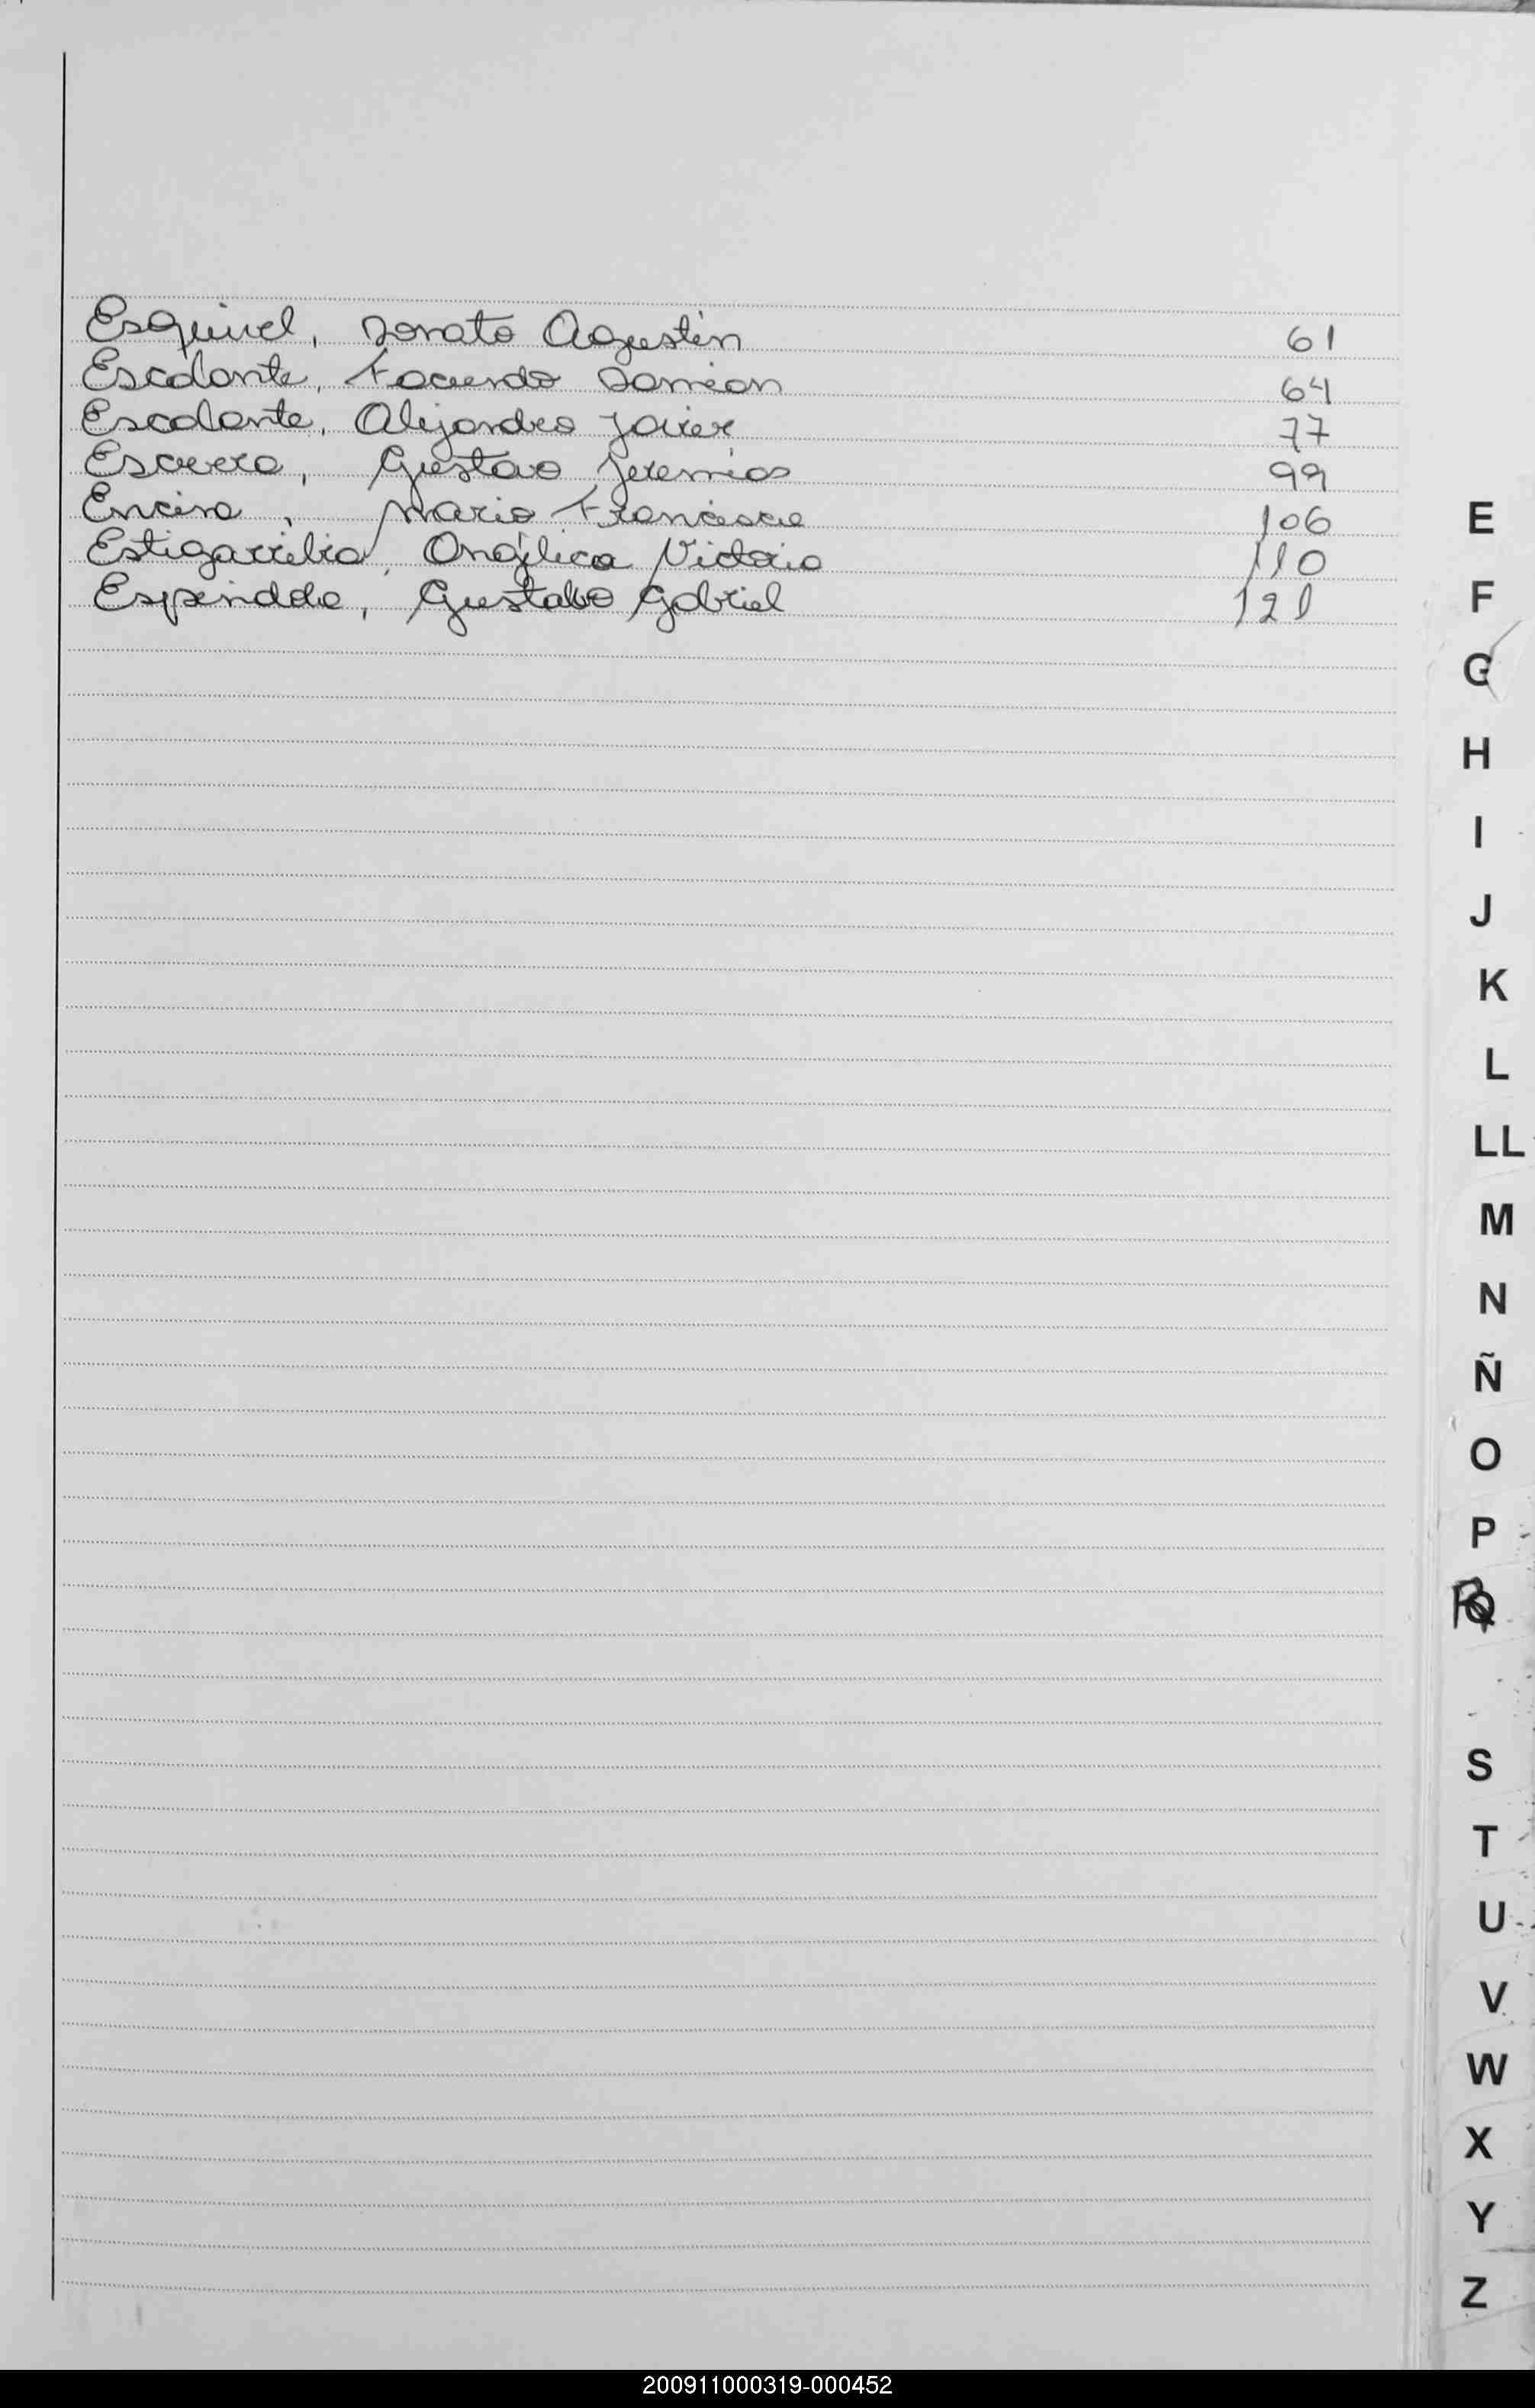 Esquivel, Donato Agustin 61
Escalante, Facundo Damian 64
Escalante, Alejandro Javier 77
Gustavo Jeremias 99
Encina, Mario Francisco 106
Estigarribia, Angélica Victoria 110
Espindola, Gustabo Gabriel 121
E
F
G
H
I
J
K
L
LL
M
N
Ñ
O
P
RQ
S
T
U
V
W
X
Y
Z
200911000319-000452